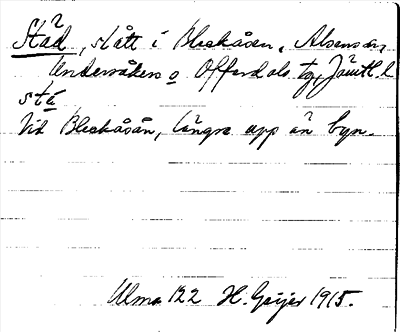 Stad, slått i Bleckåsen, Alsens sn,
Undersåkers o Offerdals tg, Jämtl. l
stá
Vid Bleckåsån, längre upp än byn.
Ulma 122 H. Geijer 1915.